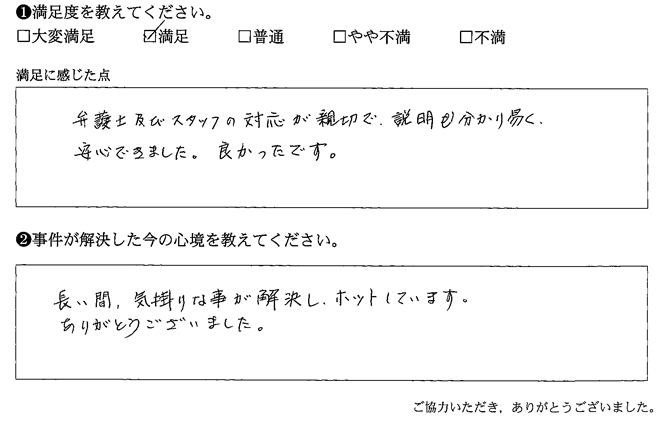 ❶満足度を教えてください。
□大変満足 ☑満足 □普通 □やや不満 □不満
満足に感じた点
弁護士及びスタッフの対応が親切で、説明も分かり易く、
安心できました。良かったです。
❷事件が解決した今の心境を教えてください。
長い間、気掛りな事が解決し、ホットしています。
ありがとうございました。
ご協力いただき、ありがとうございました。